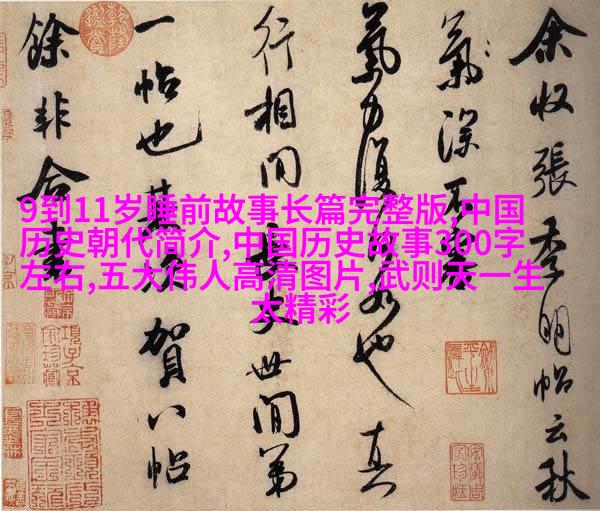 9到11岁睡前故事长篇完整版,中国
历史朝代简介,中国历史故事300字
左右,五大伟人高清图片,武则天一生
太精彩
余收張季明帖云秋
氣深不審
氣力復何如也真
行相間長史世間第
一帖也其次賀八帖
餘非合書